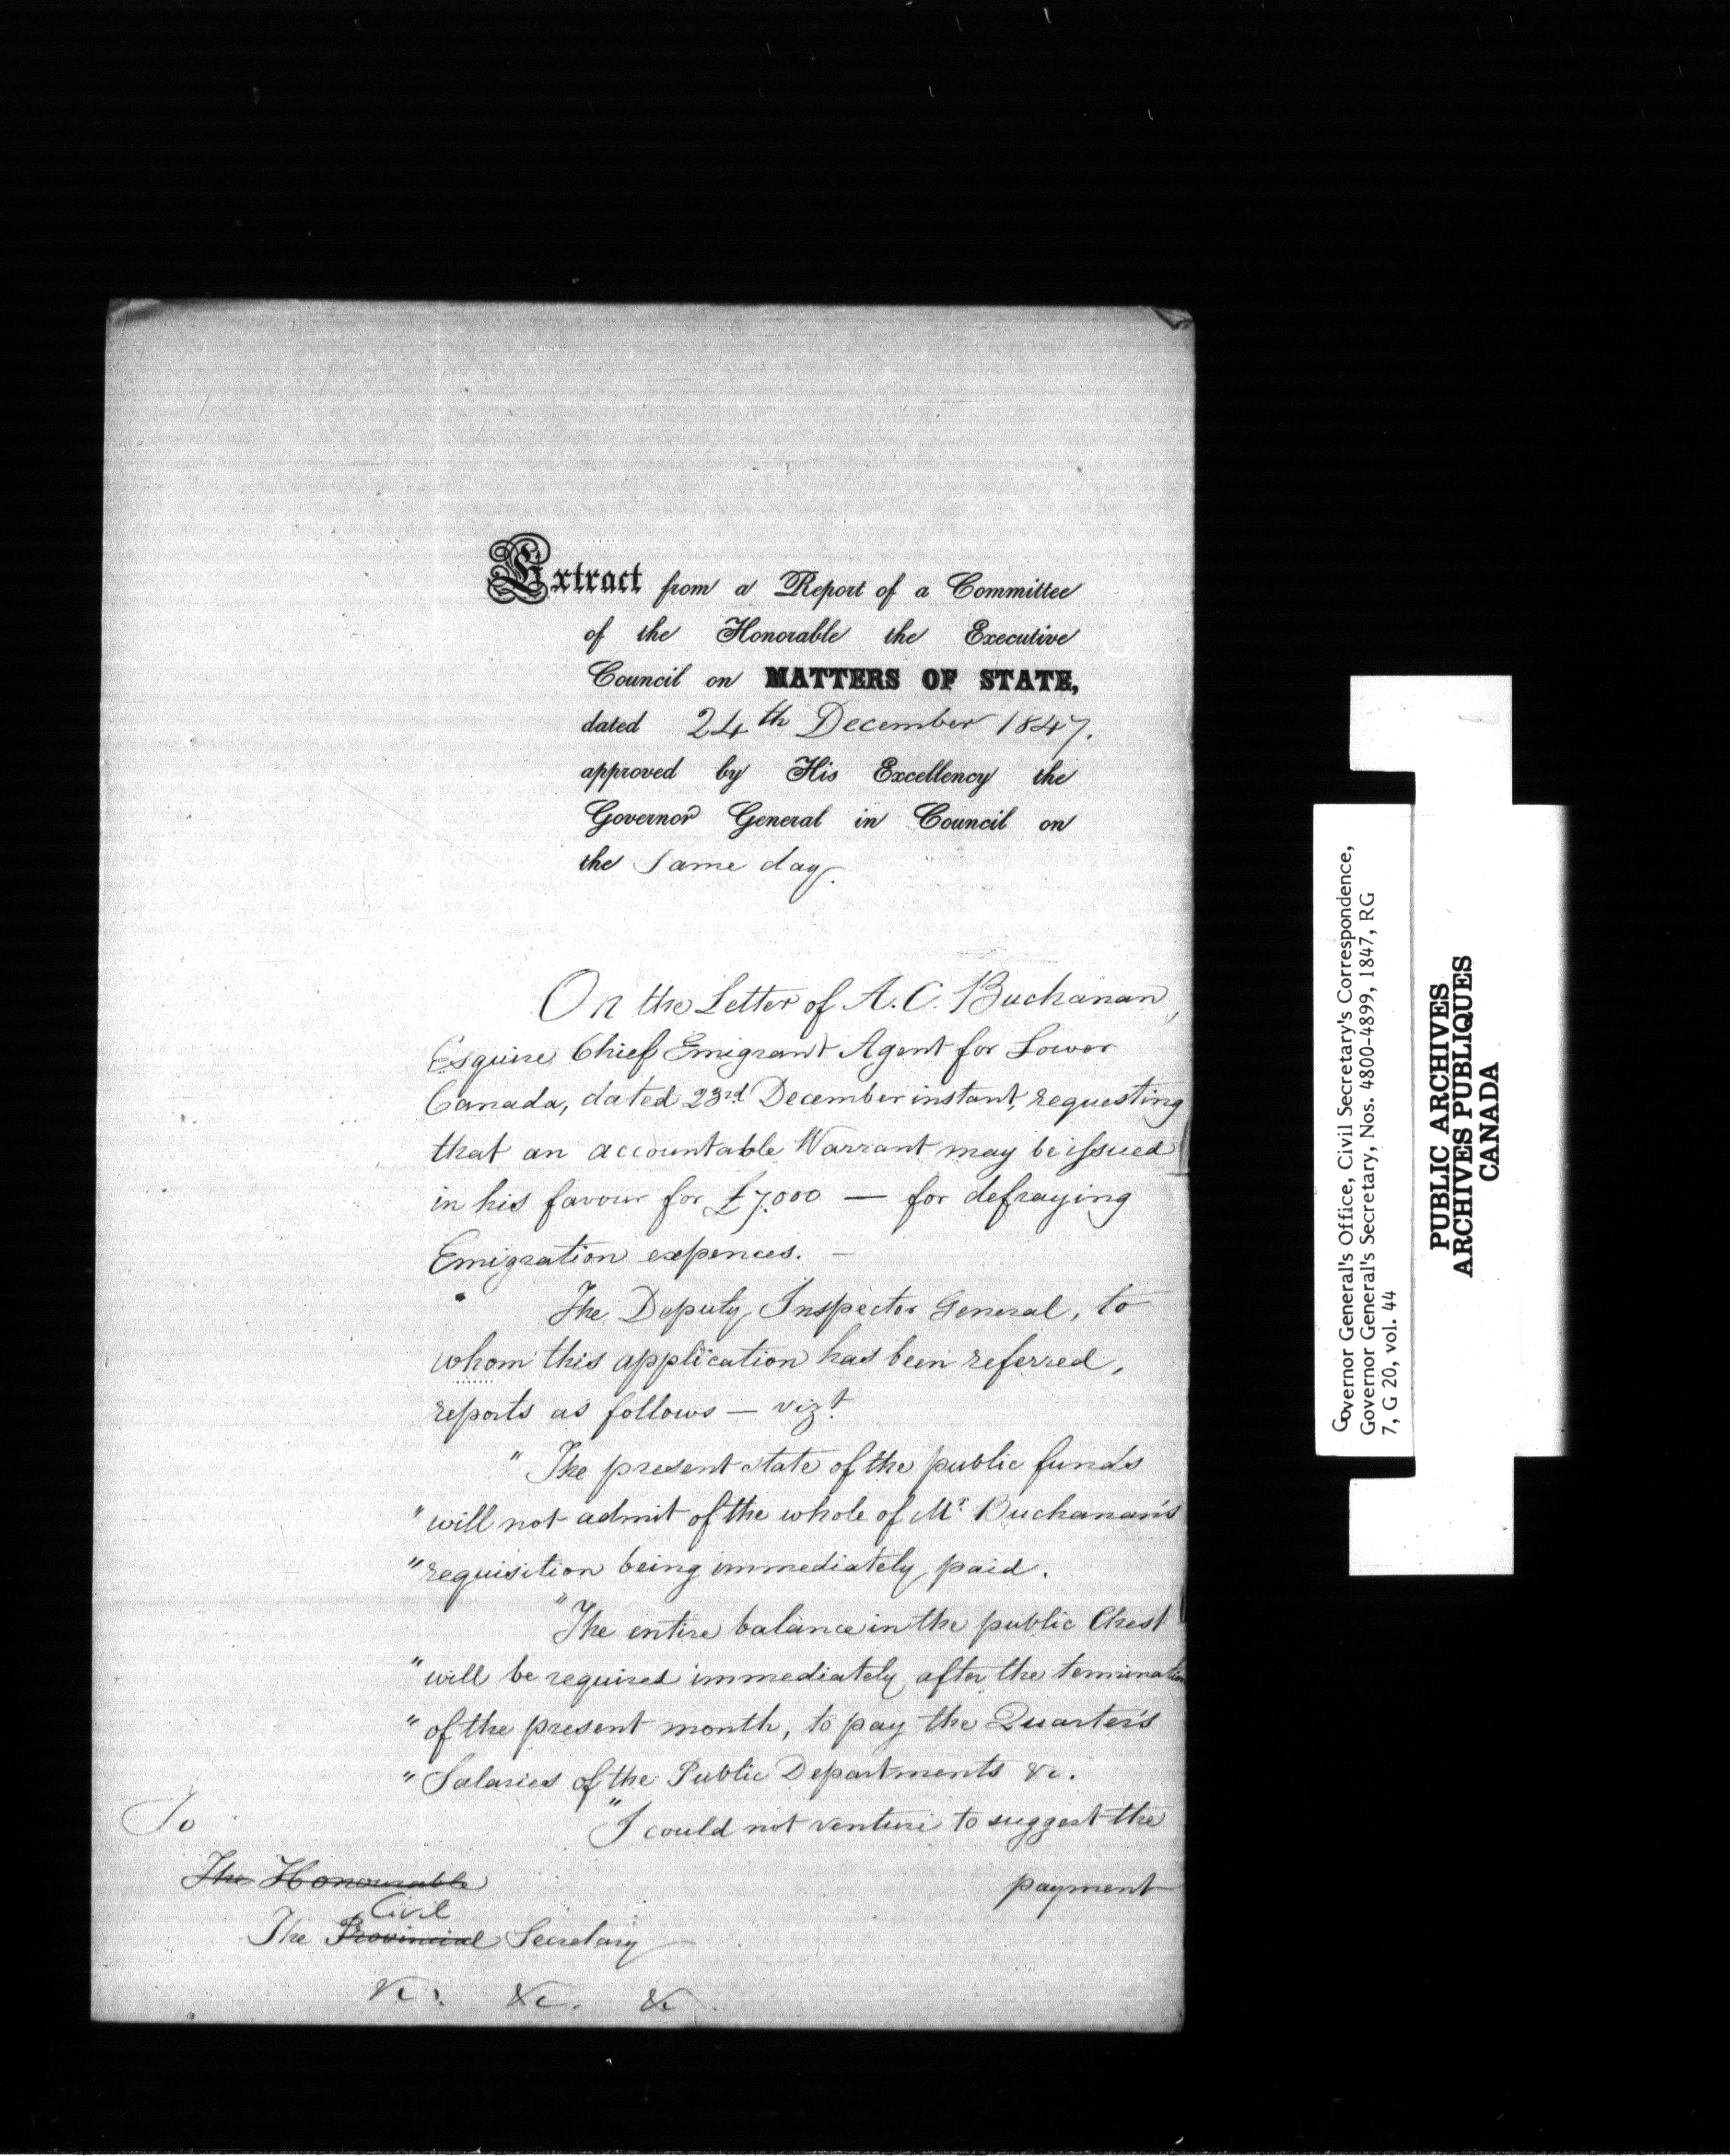 Extract from a Report of a Committee
of the Honorable the Executive
Council on MATTERS OF STATE,
dated 24th December 1847.
approved by His Excellency the
Governor General in Council on
the same day.
On the Letter of A. C. Buchanan,
Esquire Chief Emigrant Agent for Lower
Canada, dated 23rd December instant, requesting
that an accountable Warrant may be issued
in his favour for £7.000 — for defraying
Emigration expences. —
The Deputy Inspector General, to
whom this application has been referred,
reports as follows — vizt
" The present state of the public funds
" will not admit of the whole of Mr Buchanan's
" requisition being immediately paid.
"The entire balance in the public Chest
" will be required immediately after the termination
" of the present month, to pay the Quarter's
" Salaries of the Public Departments &c.
"I could not venture to suggest the
payment
To
The Honourable
Civil
The Provincial Secretary
&c. &c. &c
Governor General's Office, Civil Secretary's Correspondence,
Governor General's Secretary, Nos. 4800-4899, 1847, RG
7, G 20, vol. 44
PUBLIC ARCHIVES
ARCHIVES PUBLIQUES
CANADA